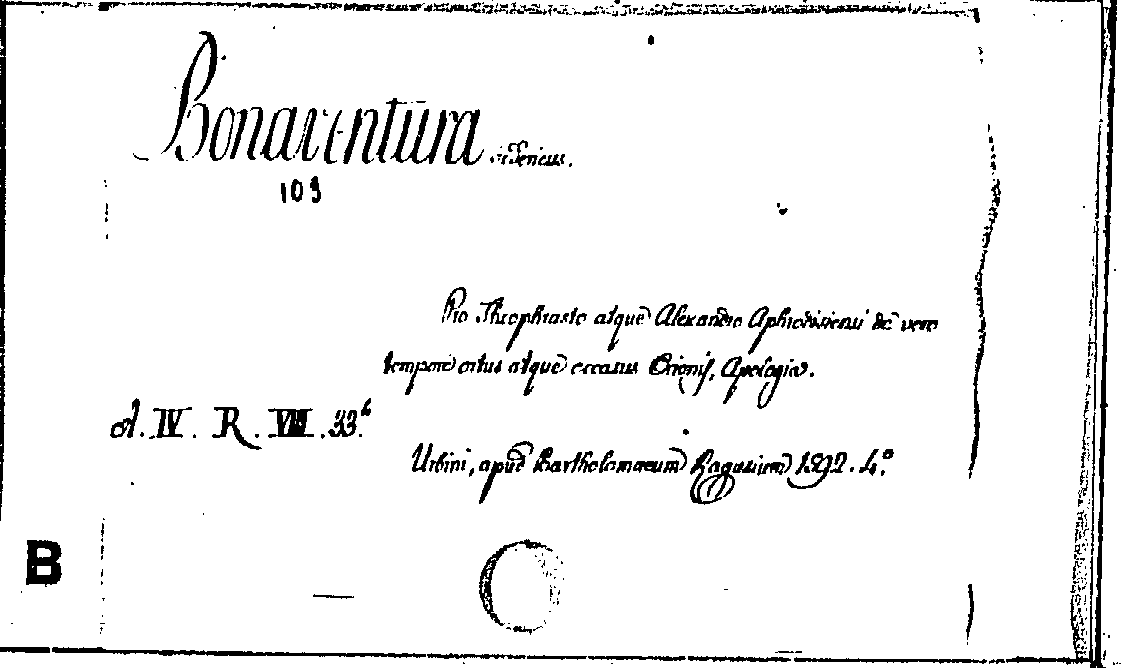 Bonaventura
109
Pro Theophrasto atque Alexandro Aphrodisiensi de vero
tempore ortus atque occasus Orionis, Apologia.
A. IV. R. VIII. 33.
Urbini, apud Bartholomaeum Ragusium 1592. 4.º
B